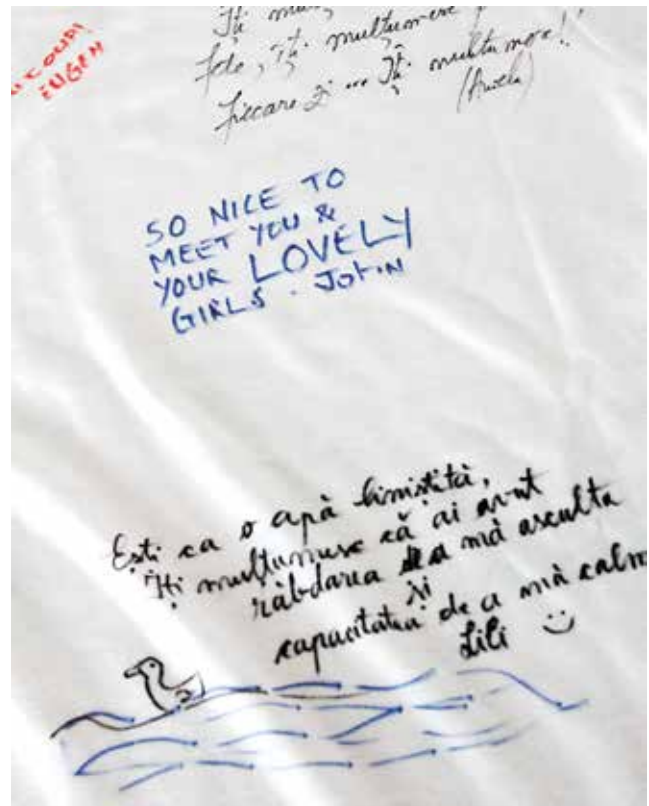 EUGEN
Îți mulțumesc
fete, Îți mulțumesc
fiecare zi ... Îți multumesc!!
SO NICE TO
MEET YOU &
YOUR LOVELY
GIRLS. JOHN
Ești ca o apă linistită,
Iți mulțumesc că ai avut
răbdarea de a mă asculta
și
capacitatea de a mă calm
Lili